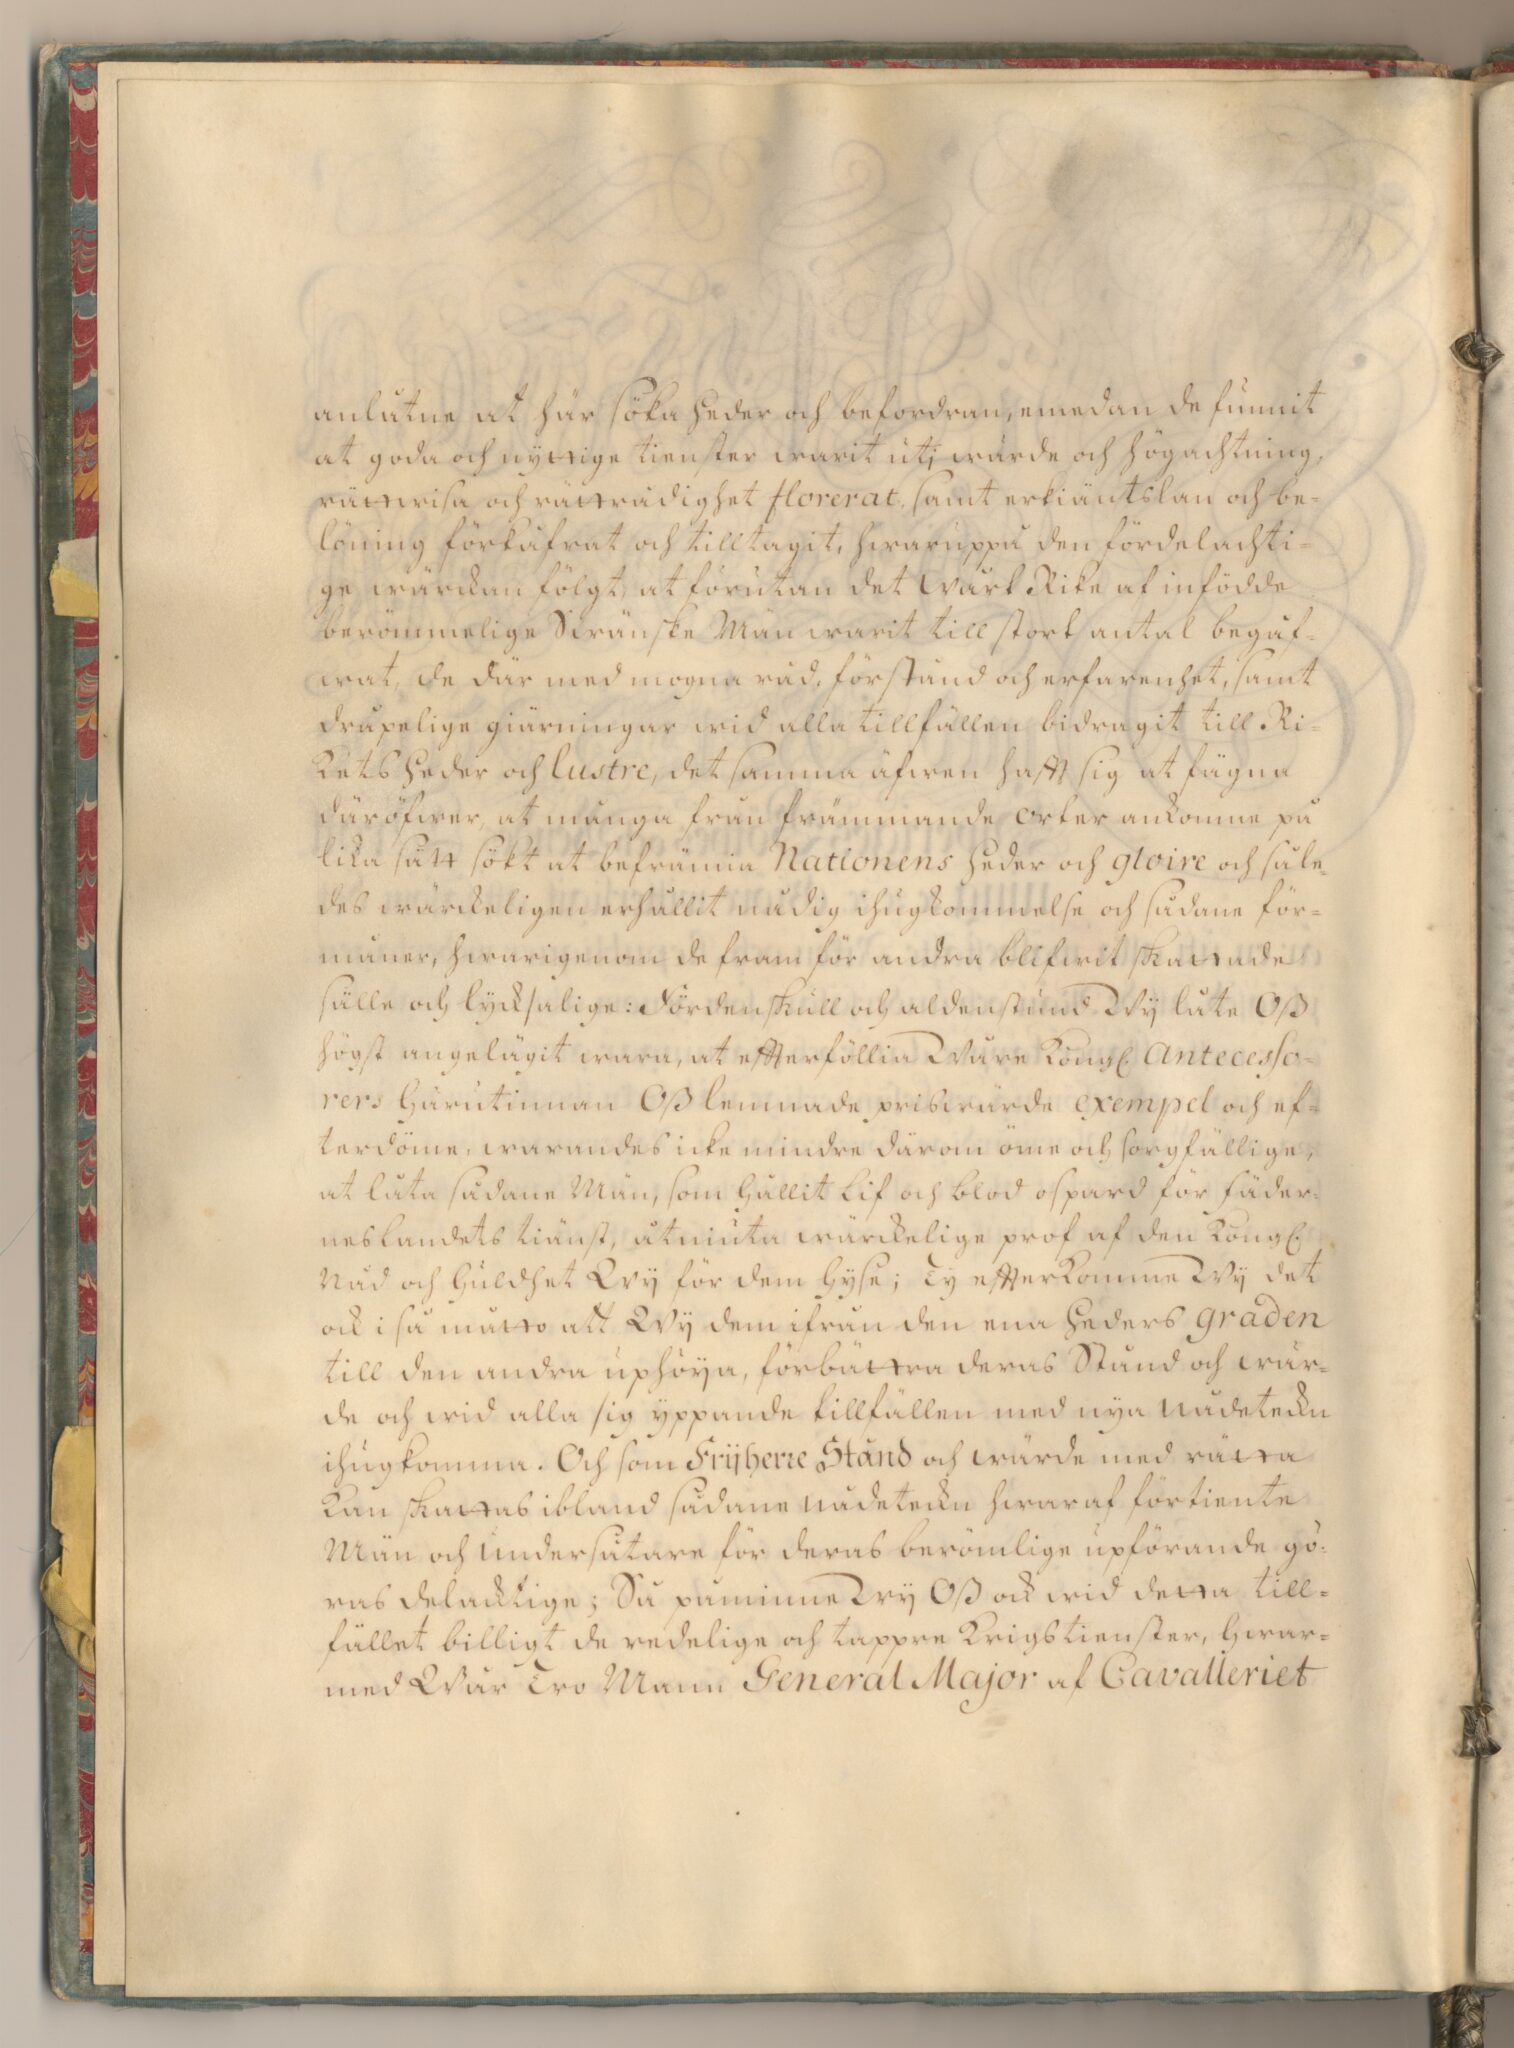 anlåtne at här söka heder och befordran, emedan de funnit
at goda och nyttige tienster warit uti wärde och högachtning,
rättwisa och rättrådighet florerat, samt erkiäntslan och be-
löning förkåfrat och tilltagit, hwaruppå den fördelachti-
ge wärckan fölgt, at förutan det Wårt Rike af infödde
berömmelige Swänske Män warit till stort antal begåf-
wat, de där med mogna råd, förstånd och erfarenhet, samt
dråpelige giärningar wid alla tillfällen bidragit till Ri-
kets heder och lustre, det samma äfwen hafft sig at fägna
däröfwer, at många från främmande orter ankomne på
lika sätt sökt at befrämia Nationens heder och gloire och såle-
des wärckeligen erhållit nådig ihugkommelse och sådane för-
måner, hwarigenom de fram för andra blifwit skattade
sälle och lycksalige: Fördenskull och aldenstund Wy låte Oß
högst angelägit wara, at effterföllia Wåre Kongl. Antecesso-
rers härutinnan Oß lemnade priswärde exempel och ef-
terdöme, warandes icke mindre därom öme och sorgfällige,
at låta sådane Män, som hållit lif och blod ospard för fäder-
neslandets tiänst, åtniuta wärckelige prof af den Kongl.
Nåd och huldhet Wy för dem hyse; Ty effterkomme Wy det
ock i så matto att Wy dem ifrån den ena heders graden
till den andra uphöya, förbättra deras Stånd och wär-
de och wid alla sig yppande tillfällen med nya nådeteckn
ihugkomma. Och som Frijherre Stånd och wärde med rätta
kan skattas ibland sådane nådeteckn hwaraf förtiente
Män och undersåtare för deras berömlige upförande gö-
ras delacktige; Så påminne Wy Oß ock wid detta till-
fället billigt de redelige och tappre Krigstienster, hwar-
med Wår Tro Mann General Major af Cavalleriet